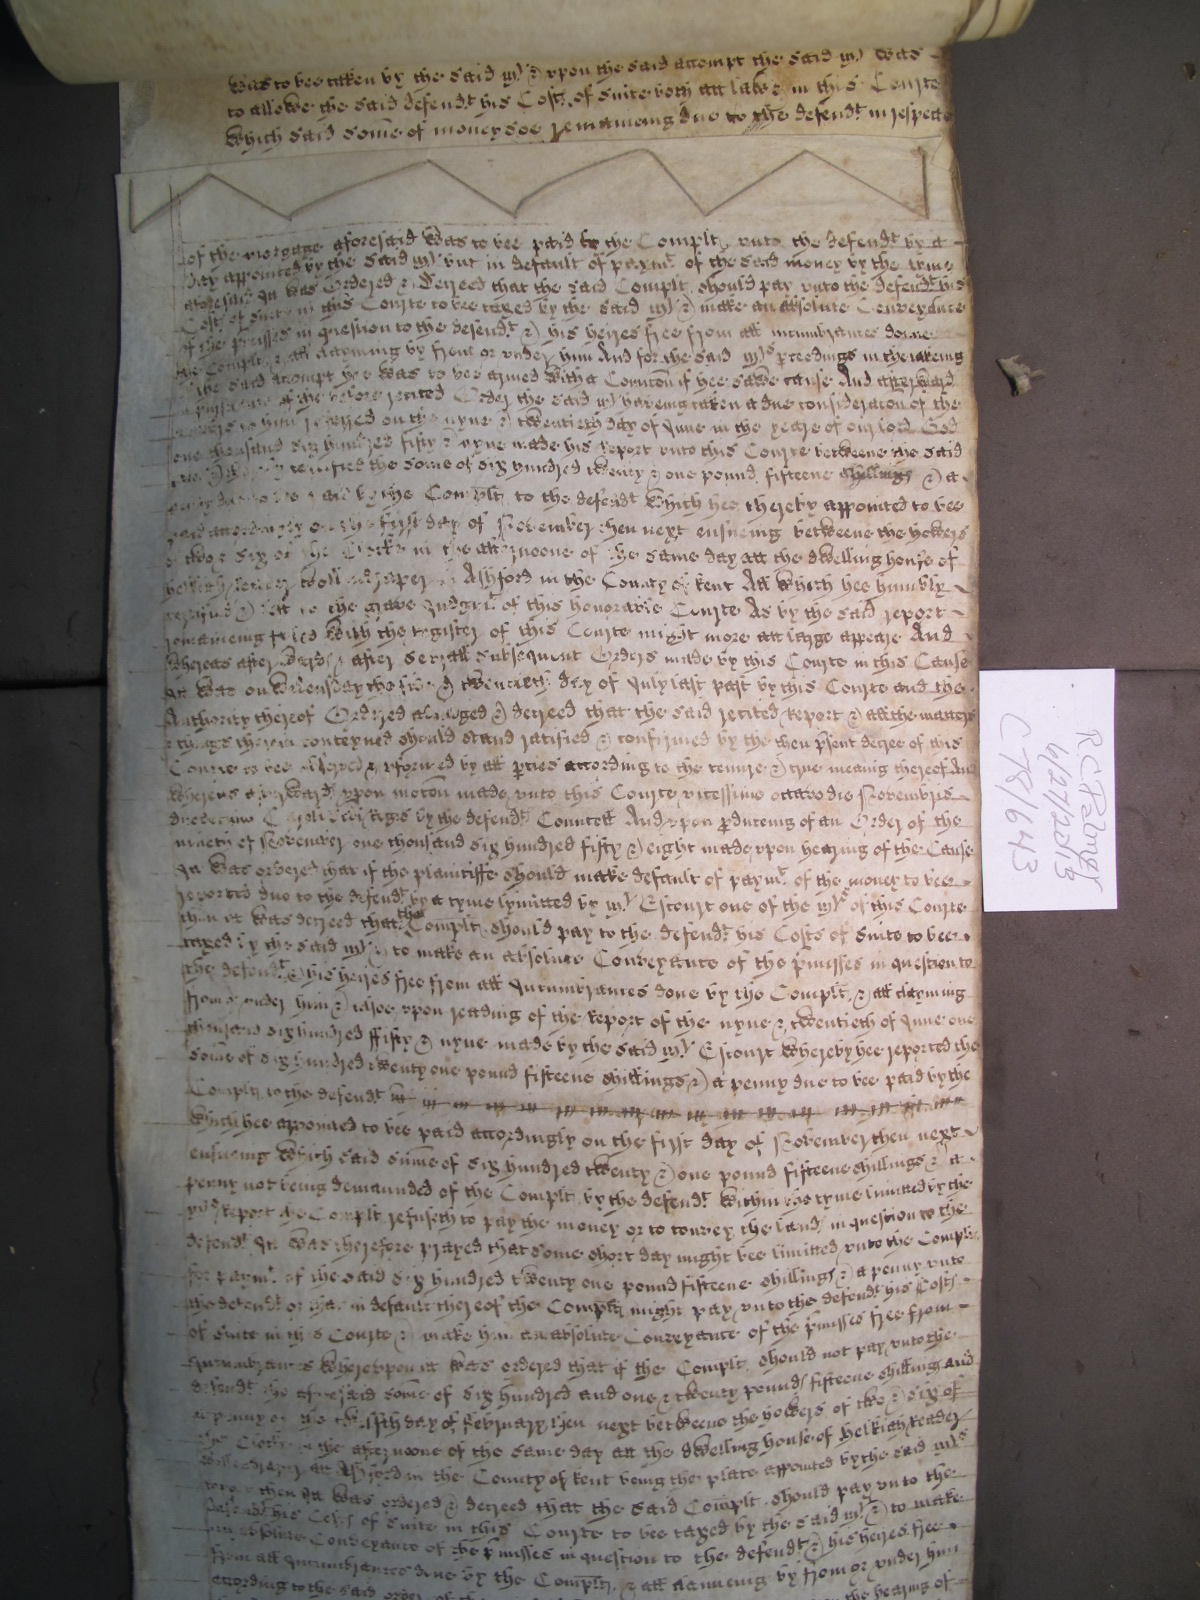 was to bee taken by the said Mr & upon the said attempt the said Mr was
to allowe the said defendt his Costs of suite both att lawe & in this Courte
which said some of money soe remaineing due to the defendt in respect
of the mortgage aforesaid was to bee paid by the Complt unto the defendt by a
day appointed by the said Mr but in default of paymt of the said money by the tyme
aforesaid It was Ordered & Decreed that the said Complt should pay unto the defendt his
Costs of suite in this Courte to bee taxed by the said Mr & make an absolute Conveyance
of the prmisses in question to the defendt & his heyres free from all incumbrances donne
the Complt & all claymeing by from or under him And for the said Mrs proceedings in the takeing
the said attempt hee was to bee armed with a Comicon if hee sawe cause And afterward
of the before recited Order the said Mr haveing taken a due consideracon of the
to him referred on the nyne & twentieth day of June in the yeare of our lord God
one thousand six hundred fifty & nyne made his report unto this Courte betweene the said
certified the some of six hundred twenty & one pound fifteene shillings & a
penny due to bee paid by the Complt to the defendt which hee thereby appointed to bee
paid accordingly on the first day of November then next ensueing betweene the howers
of twoe & six of the Clocke in the afternoone of the same day att the dwelling house of
Helkiah Reader wollendraper in Ashford in the County of Kent All which hee humbly
certified & left to the grave Judgmt of this honorable Courte As by the said report
remaineing filed with the register of this Courte might more att large appeare And
whereas afterwards & after severall subsequent Orders made by this Courte in this Cause
It was on Wednesday the & twentieth day of July last past by this Courte and the
Authority thereof Ordered adiudged & decreed that the said recited report & all the matters
& things therein conteyned should stand ratified & confirmed by the then prsent decree of this
Courte to bee observed & prformed by all prties according to the tenure & true meaning thereof And
whereas afterwards upon motion made unto this Courte vicessimo octavo die Novembris
duodecimo Caroli Regis by the defendts Councell And upon produceing of an Order of the
nineth of November one thousand six hundred fifty & eight made upon heareing of the Cause
It was ordered that if the plaintiffe should make default of paymt of the money to bee
reported due to the defendt by a tyme lymitted by Mr Estcourt one of the Mrs of this Courte
then it was decreed that the Complt should pay to the defendt his Costs of suite to bee
taxed by the said Mr & to make an absolute Conveyance of the prmisses in question to
the defendt & his heyres free from all Incumbrances done by the Complt & all claymeing
from or under him & alsoe upon reading of the Report of the nyne & twentieth of June one
thousand six hundred fifty & nyne made by the said Mr Estcourt whereby hee reported the
some of six hundred twenty one pound fifteene shillings & a penny due to bee paid by the
Complt to the defendt
which hee appointed to bee paid accordingly on the first day of November then next
ensueing which said sume of six hundred twenty & one pound fifteene shillings & a
penny not being demaunded of the Complt by the defendt within the tyme limitted by the
Mrs Report the Complt refuseth to pay the money or to convey the lands in question to the
defendt It was therefore prayed that some short day might bee limitted unto the Complt
for paymt of the said six hundred twenty one pound fifteene shillings & a penny unto
the defendt or that in default thereof the Complt might pay unto the defendt his Costs
of suite in this Courte & make him an absolute Conveyance of the prmisses free from
Incumbrances Whereupon it was ordered that if the Complt should not pay unto the
defendt the aforesaid some of six hundred and one & twenty pounds fifteene shillings and
a penny on the twelfth day of February then next betweene the howers of two & six of
the Clocke in the afternoone of the same day att the dwelling house of Helkiah Reader
wollendraper att Ashford in the County of Kent being the place appointed by the said Mrs
report then It was ordered & decreed that the said Complt should pay unto the
defendt his Costs of suite in this Courte to bee taxed by the said Mr & to make
an absolute Conveyance of the prmisses in question to the defendt & his heyres free
from all Incumbrances done by the Complt & all claymeing by from or under him
according to the said order of the the hearing of
R C Palmer
6/27/2013
C78/643